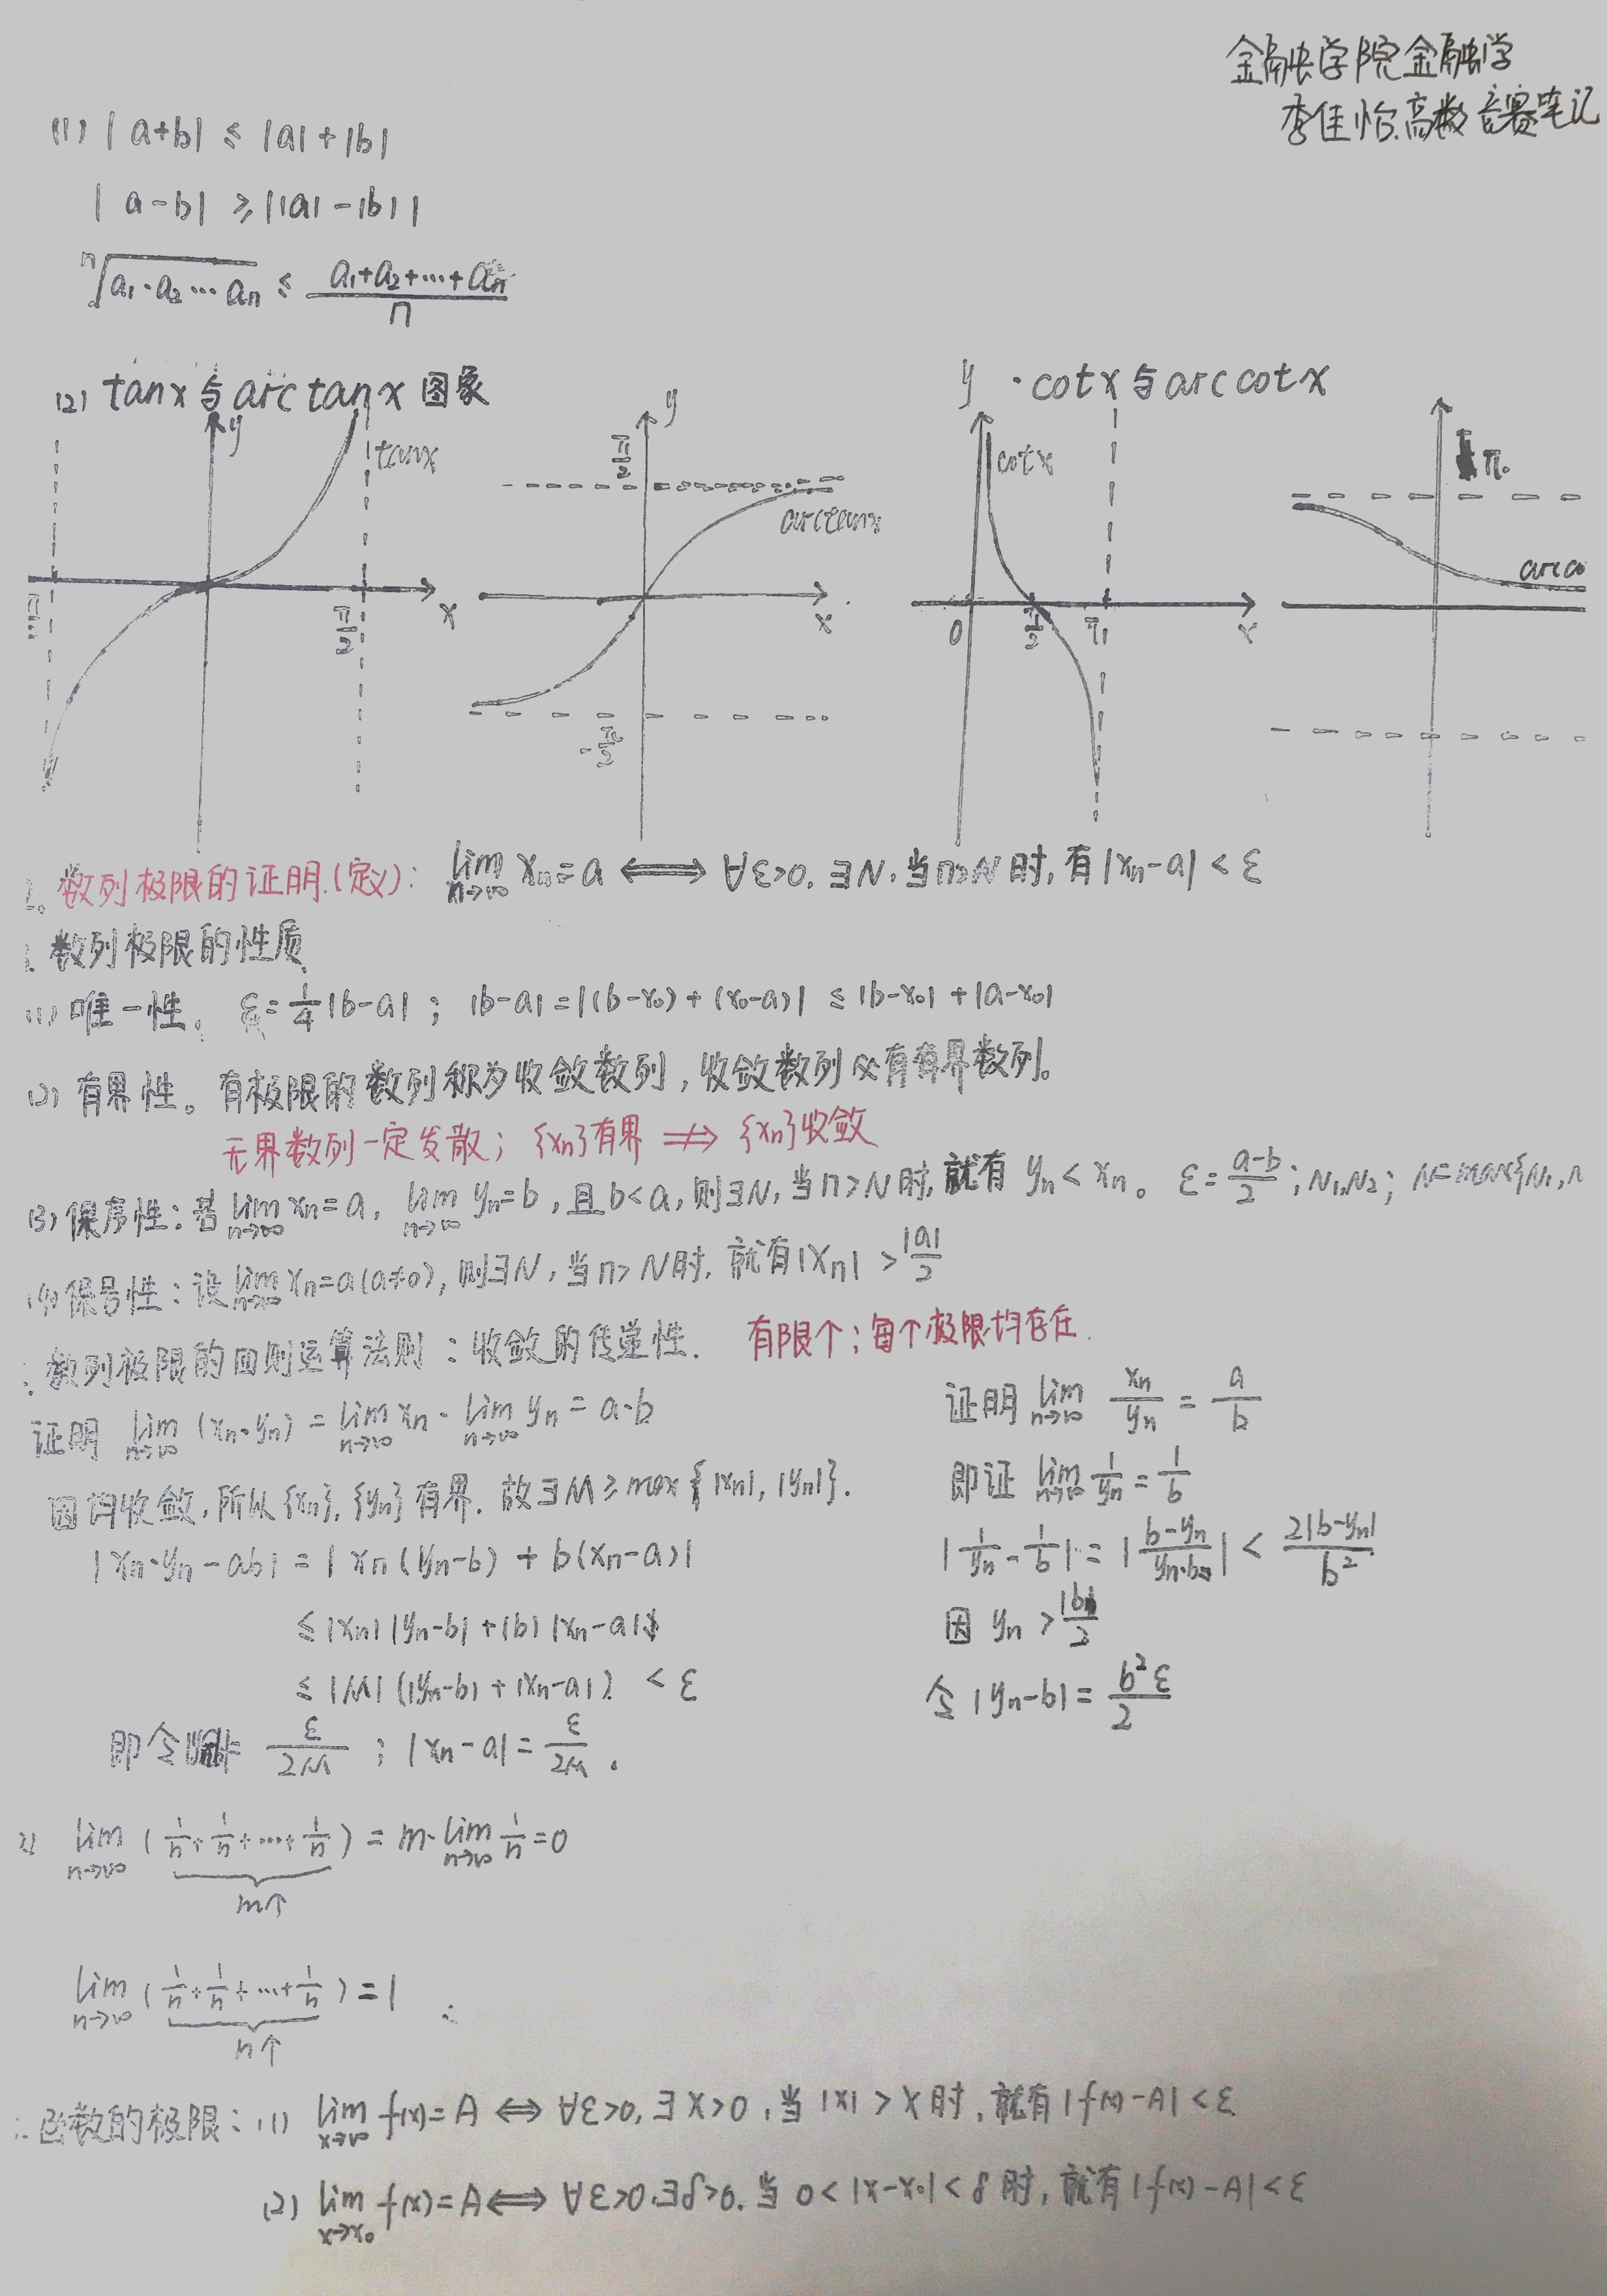 金融学院金融学
李佳怡.高数竞赛笔记
(1) |a+b| ≤ |a|+|b|
|a-b| ≥ ||a|-|b||
ⁿ√(a₁·a₂…aₙ) ≤ (a₁+a₂+…+aₙ)/n
(2) tanx与arctanx图象
y ·cotx与arccotx
y tanx x π/2
π/2 y arctanx x -π/2
cotx 0 π/2 π x
π
2. 数列极限的证明.(定义): lim_{n→∞} xₙ=a ⟺ ∀ε>0, ∃N, 当n>N时, 有|xₙ-a|<ε
数列极限的性质
(1) 唯一性。 ε=1/4|b-a| ; |b-a|=|(b-x₀)+(x₀-a)| ≤ |b-x₀|+|a-x₀|
(2) 有界性。有极限的数列称为收敛数列,收敛数列必有有界数列。
无界数列一定发散; {xₙ}有界 ⇏ {xₙ}收敛
(3) 保序性:若lim_{n→∞} xₙ=a, lim_{n→∞} yₙ=b,且b<a,则∃N,当n>N时,就有 yₙ<xₙ。 ε=(a-b)/2; N₁,N₂; N=max{N₁,
(4) 保号性:设lim_{n→∞} xₙ=a(a≠0),则∃N,当n>N时,就有|xₙ|>|a|/2
数列极限的四则运算法则:收敛的传递性. 有限个;每个极限均存在.
证明 lim_{n→∞} (xₙ·yₙ) = lim_{n→∞} xₙ · lim_{n→∞} yₙ = a·b
因均收敛,所以{xₙ},{yₙ}有界.故∃M≥max{|xₙ|,|yₙ|}.
|xₙ·yₙ-ab| = |xₙ(yₙ-b)+b(xₙ-a)|
≤|xₙ||yₙ-b|+|b||xₙ-a|
≤|M|(|yₙ-b|+|xₙ-a|) <ε
即令 = ε/2M ; |xₙ-a|=ε/2M.
证明 lim_{n→∞} xₙ/yₙ = a/b
即证 lim_{n→∞} 1/yₙ = 1/b
|1/yₙ - 1/b| = |(b-yₙ)/(yₙ·b)| < 2|b-yₙ|/b²
因 yₙ > |b|/2
令|yₙ-b| = b²ε/2
lim_{n→∞} (1/n+1/n+…+1/n) = m·lim_{n→∞} 1/n=0
m个
lim_{n→∞} (1/n+1/n+…+1/n) =1
n个
函数的极限:(1) lim_{x→∞} f(x)=A ⟺ ∀ε>0,∃X>0,当|x|>X时,就有|f(x)-A|<ε
(2) lim_{x→x₀} f(x)=A ⟺ ∀ε>0,∃δ>0,当0<|x-x₀|<δ时,就有|f(x)-A|<ε